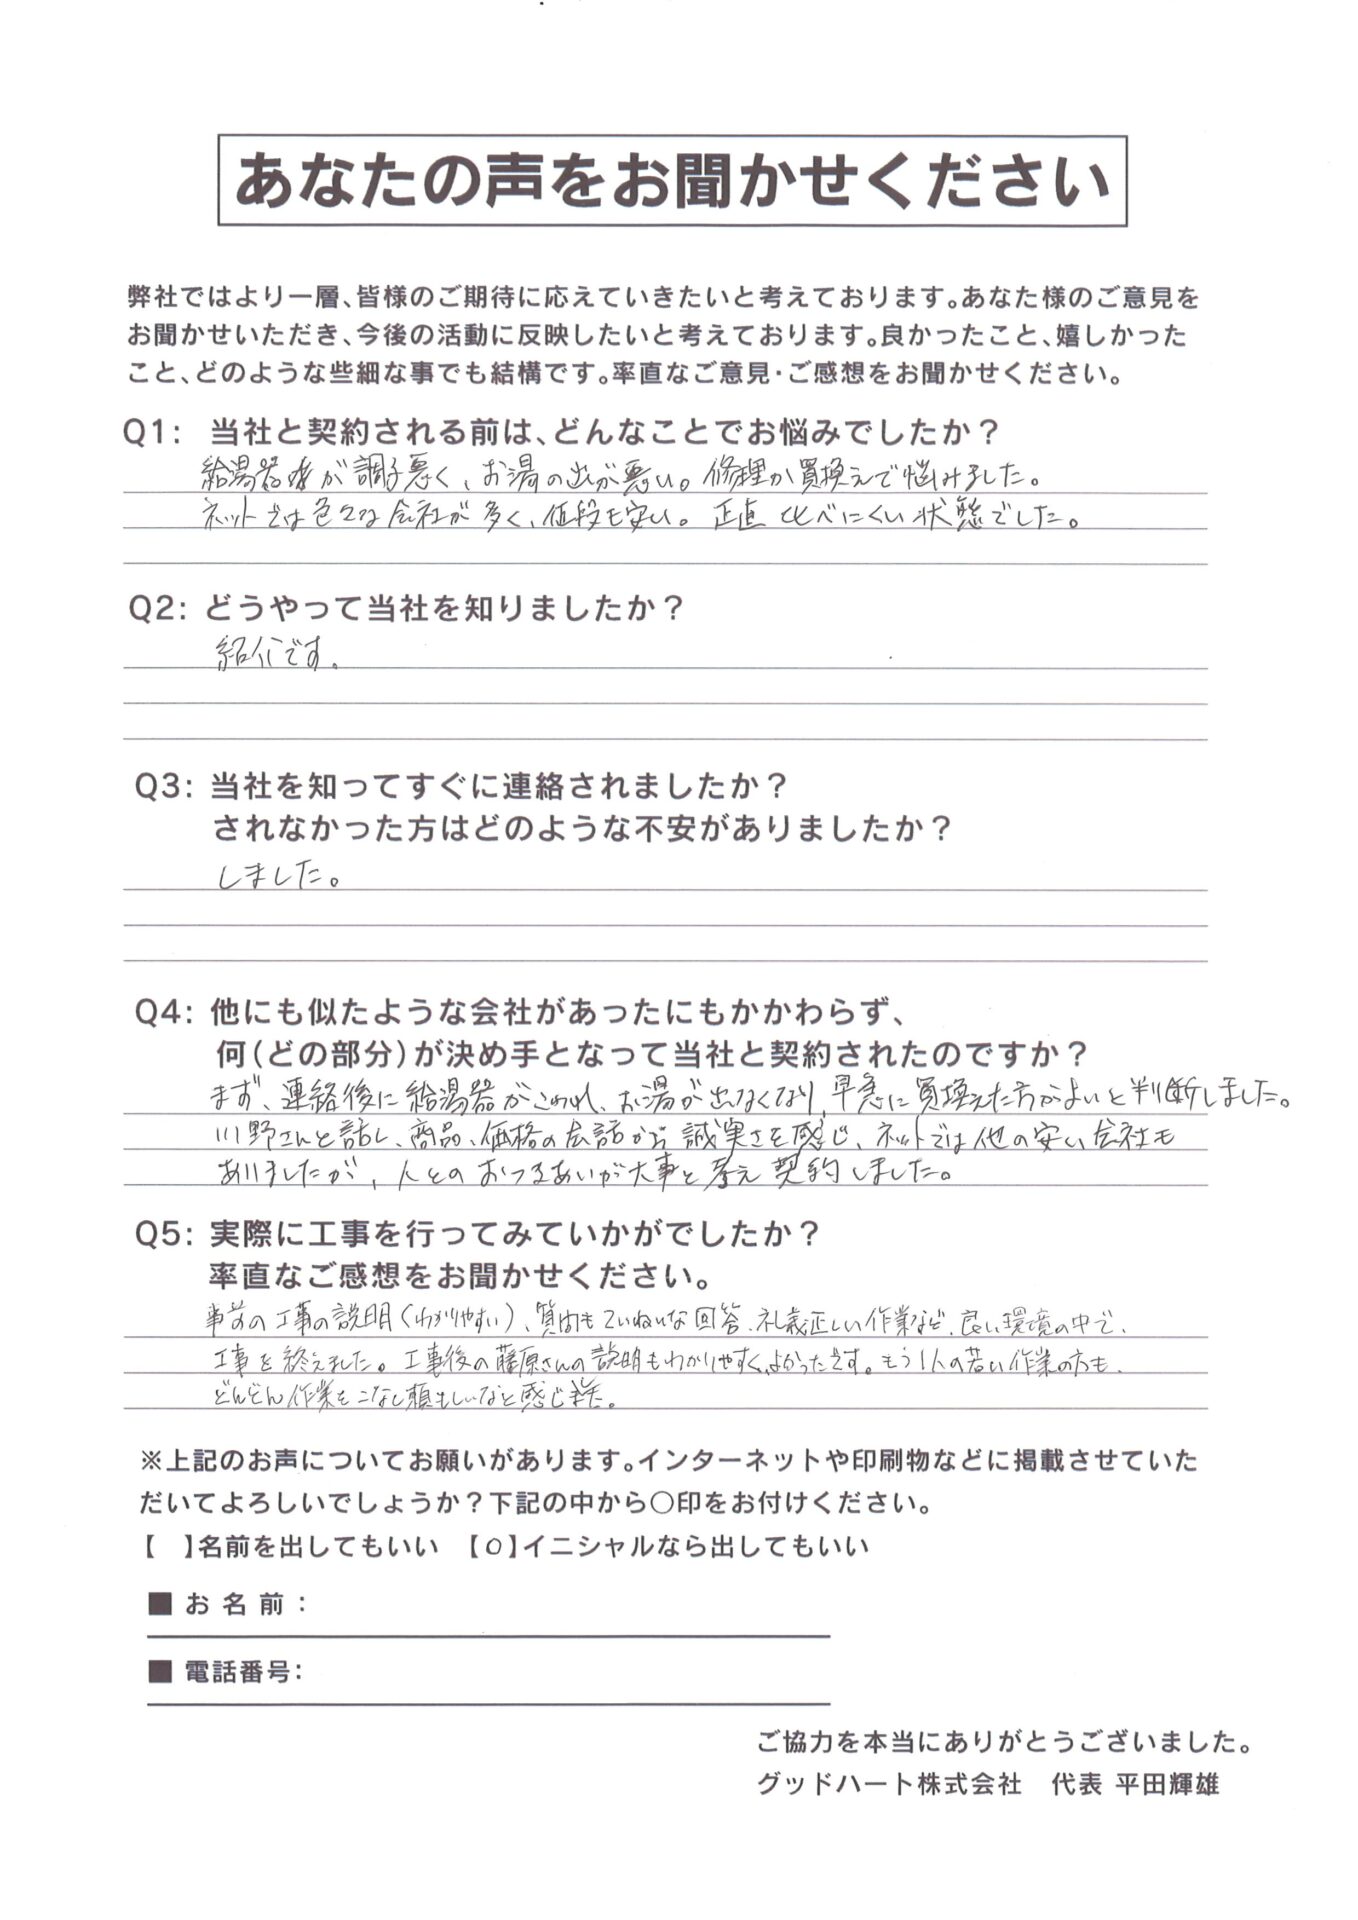 あなたの声をお聞かせください
弊社ではより一層、皆様のご期待に応えていきたいと考えております。あなた様のご意見を
お聞かせいただき、今後の活動に反映したいと考えております。良かったこと、嬉しかった
こと、どのような些細な事でも結構です。率直なご意見・ご感想をお聞かせください。
Q1: 当社と契約される前は、どんなことでお悩みでしたか？
給湯器が調子悪く、お湯の出が悪い。修理か買換えで悩みました。
ネットでは色々な会社が多く、値段も安い。正直比べにくい状態でした。
Q2: どうやって当社を知りましたか？
紹介です。
Q3: 当社を知ってすぐに連絡されましたか？
されなかった方はどのような不安がありましたか？
しました。
Q4: 他にも似たような会社があったにもかかわらず、
何（どの部分）が決め手となって当社と契約されたのですか？
まず、連絡後に給湯器がこわれ、お湯が出なくなり、早急に買換えた方がよいと判断しました。
川野さんと話し、商品、価格の会話から誠実さを感じ、ネットでは他の安い会社も
ありましたが、人とのおつきあいが大事と考え契約しました。
Q5: 実際に工事を行ってみていかがでしたか？
率直なご感想をお聞かせください。
事前の工事の説明（わかりやすい）、質問もていねいな回答、礼義正しい作業など、良い環境の中で、
工事を終えました。工事後の藤原さんの説明もわかりやすく、よかったです。もう1人の若い作業の方も、
どんどん作業をこなし頼もしいなと感じました。
※上記のお声についてお願いがあります。インターネットや印刷物などに掲載させていた
だいてよろしいでしょうか？下記の中から○印をお付けください。
【 】名前を出してもいい 【○】イニシャルなら出してもいい
■ お名前：
■ 電話番号：
ご協力を本当にありがとうございました。
グッドハート株式会社 代表 平田輝雄